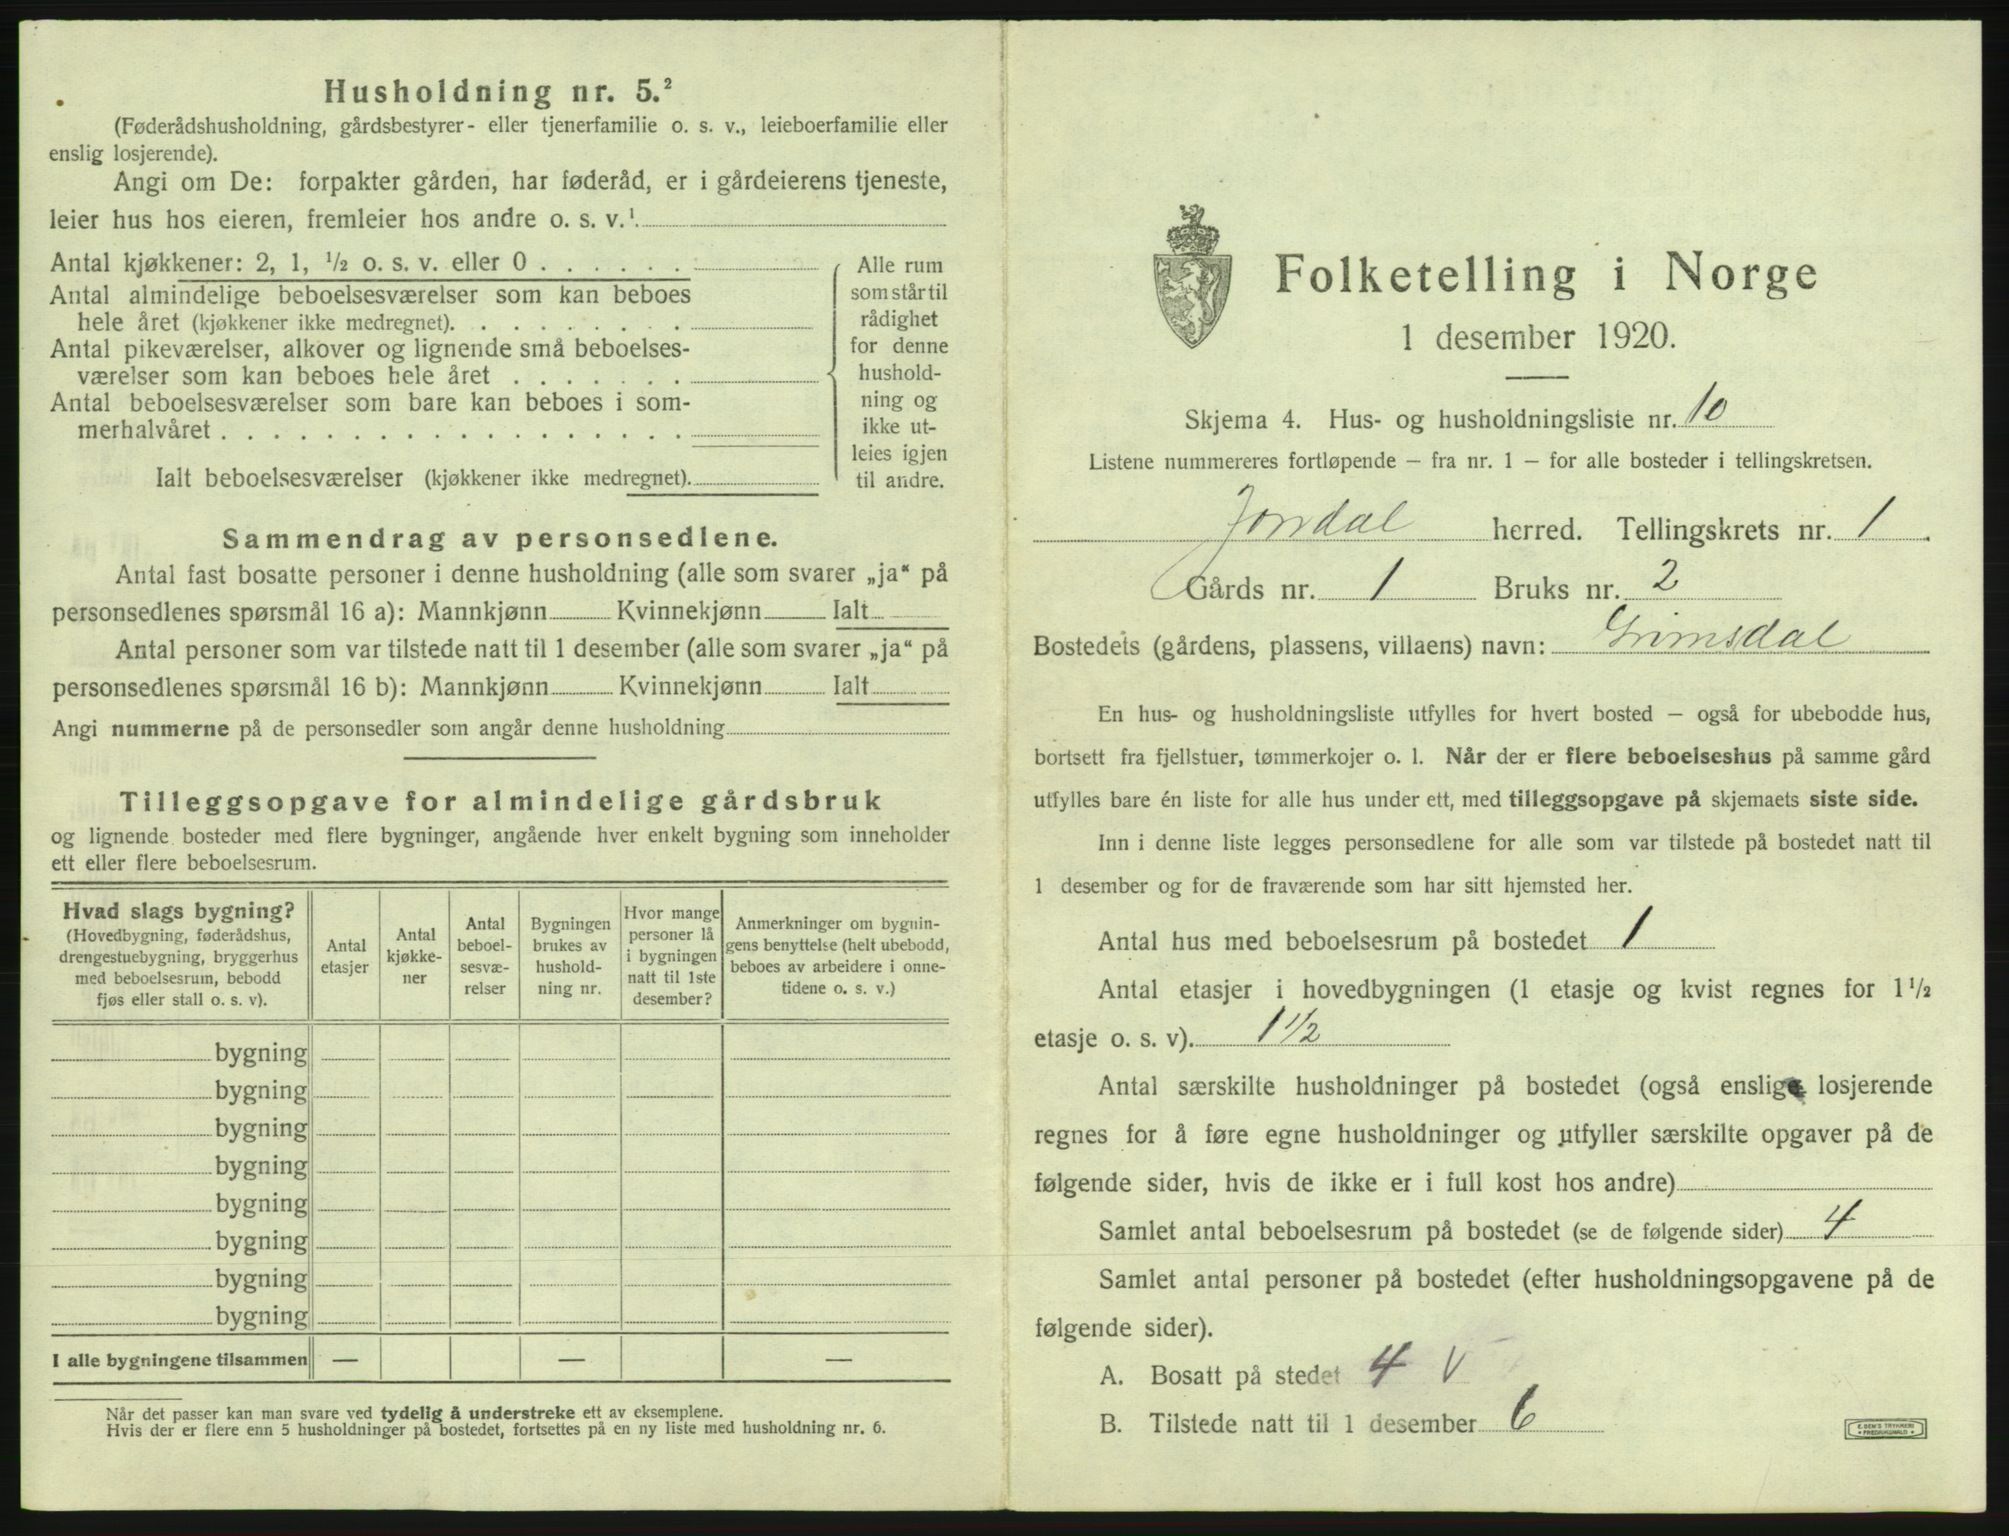 Husholdning nr. 5.²
(Føderådshusholdning, gårdsbestyrer- eller tjenerfamilie o. s. v., leieboerfamilie eller
enslig losjerende).
Angi om De: forpakter gården, har føderåd, er i gårdeierens tjeneste,
leier hus hos eieren, fremleier hos andre o. s. v.¹
Antal kjøkkener: 2, 1, ½ o. s. v. eller 0 . . . . . .
Antal almindelige beboelsesværelser som kan beboes
hele året (kjøkkener ikke medregnet). . . . . . . . .
Antal pikeværelser, alkover og lignende små beboelses-
værelser som kan beboes hele året . . . . . . .
Antal beboelsesværelser som bare kan beboes i som-
merhalvåret . . . . . . . . . . . . . . . . . .
Ialt beboelsesværelser (kjøkkener ikke medregnet).
Alle rum
som står til
rådighet
for denne
hushold-
ning og
ikke ut-
leies igjen
til andre.
Sammendrag av personsedlene.
Antal fast bosatte personer i denne husholdning (alle som svarer „ja“ på
personsedlenes spørsmål 16 a): Mannkjønn Kvinnekjønn Ialt
Antal personer som var tilstede natt til 1 desember (alle som svarer „ja“ på
personsedlenes spørsmål 16 b): Mannkjønn Kvinnekjønn Ialt
Angi nummerne på de personsedler som angår denne husholdning
Tilleggsopgave for almindelige gårdsbruk
og lignende bosteder med flere bygninger, angående hver enkelt bygning som inneholder
ett eller flere beboelsesrum.
Hvad slags bygning?
(Hovedbygning, føderådshus,
drengestuebygning, bryggerhus
med beboelsesrum, bebodd
fjøs eller stall o. s. v).
Antal
etasjer
Antal
kjøkke-
ner
Antal
beboel-
sesvæ-
relser
Bygningen
brukes av
hushold-
ning nr.
Hvor mange
personer lå
i bygningen
natt til 1ste
desember?
Anmerkninger om bygnin-
gens benyttelse (helt ubebodd,
beboes av arbeidere i onne-
tidene o. s. v.)
bygning
bygning
bygning
bygning
bygning
bygning
bygning
bygning
I alle bygningene tilsammen — — —
Når det passer kan man svare ved tydelig å understreke ett av eksemplene.
Hvis der er flere enn 5 husholdninger på bostedet, fortsettes på en ny liste med husholdning nr. 6.
Folketelling i Norge
1 desember 1920.
Skjema 4. Hus- og husholdningsliste nr. 10
Listene nummereres fortløpende – fra nr. 1 – for alle bosteder i tellingskretsen.
Jondal herred. Tellingskrets nr. 1.
Gårds nr. 1 Bruks nr. 2
Bostedets (gårdens, plassens, villaens) navn: Grimsdal
En hus- og husholdningsliste utfylles for hvert bosted – også for ubebodde hus,
bortsett fra fjellstuer, tømmerkojer o. l. Når der er flere beboelseshus på samme gård
utfylles bare én liste for alle hus under ett, med tilleggsopgave på skjemaets siste side.
Inn i denne liste legges personsedlene for alle som var tilstede på bostedet natt til
1 desember og for de fraværende som har sitt hjemsted her.
Antal hus med beboelsesrum på bostedet 1
Antal etasjer i hovedbygningen (1 etasje og kvist regnes for 1½
etasje o. s. v). 1½
Antal særskilte husholdninger på bostedet (også enslige losjerende
regnes for å føre egne husholdninger og utfyller særskilte opgaver på de
følgende sider, hvis de ikke er i full kost hos andre)
Samlet antal beboelsesrum på bostedet (se de følgende sider) 4
Samlet antal personer på bostedet (efter husholdningsopgavene på de
følgende sider).
A. Bosatt på stedet 4 V
B. Tilstede natt til 1 desember 6